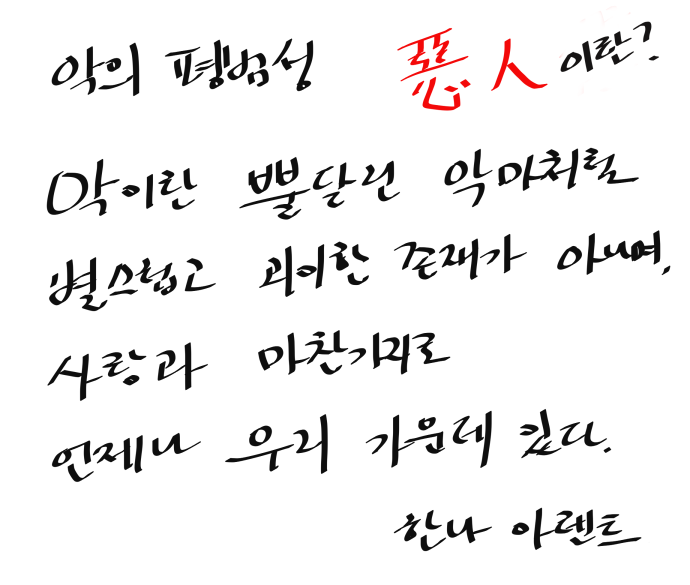 악의 평범성 惡人이란?
악이란 뿔달린 악마처럼
별스럽고 괴이한 존재가 아니며,
사랑과 마찬가지로
언제나 우리 가운데 있다.
한나 아렌트